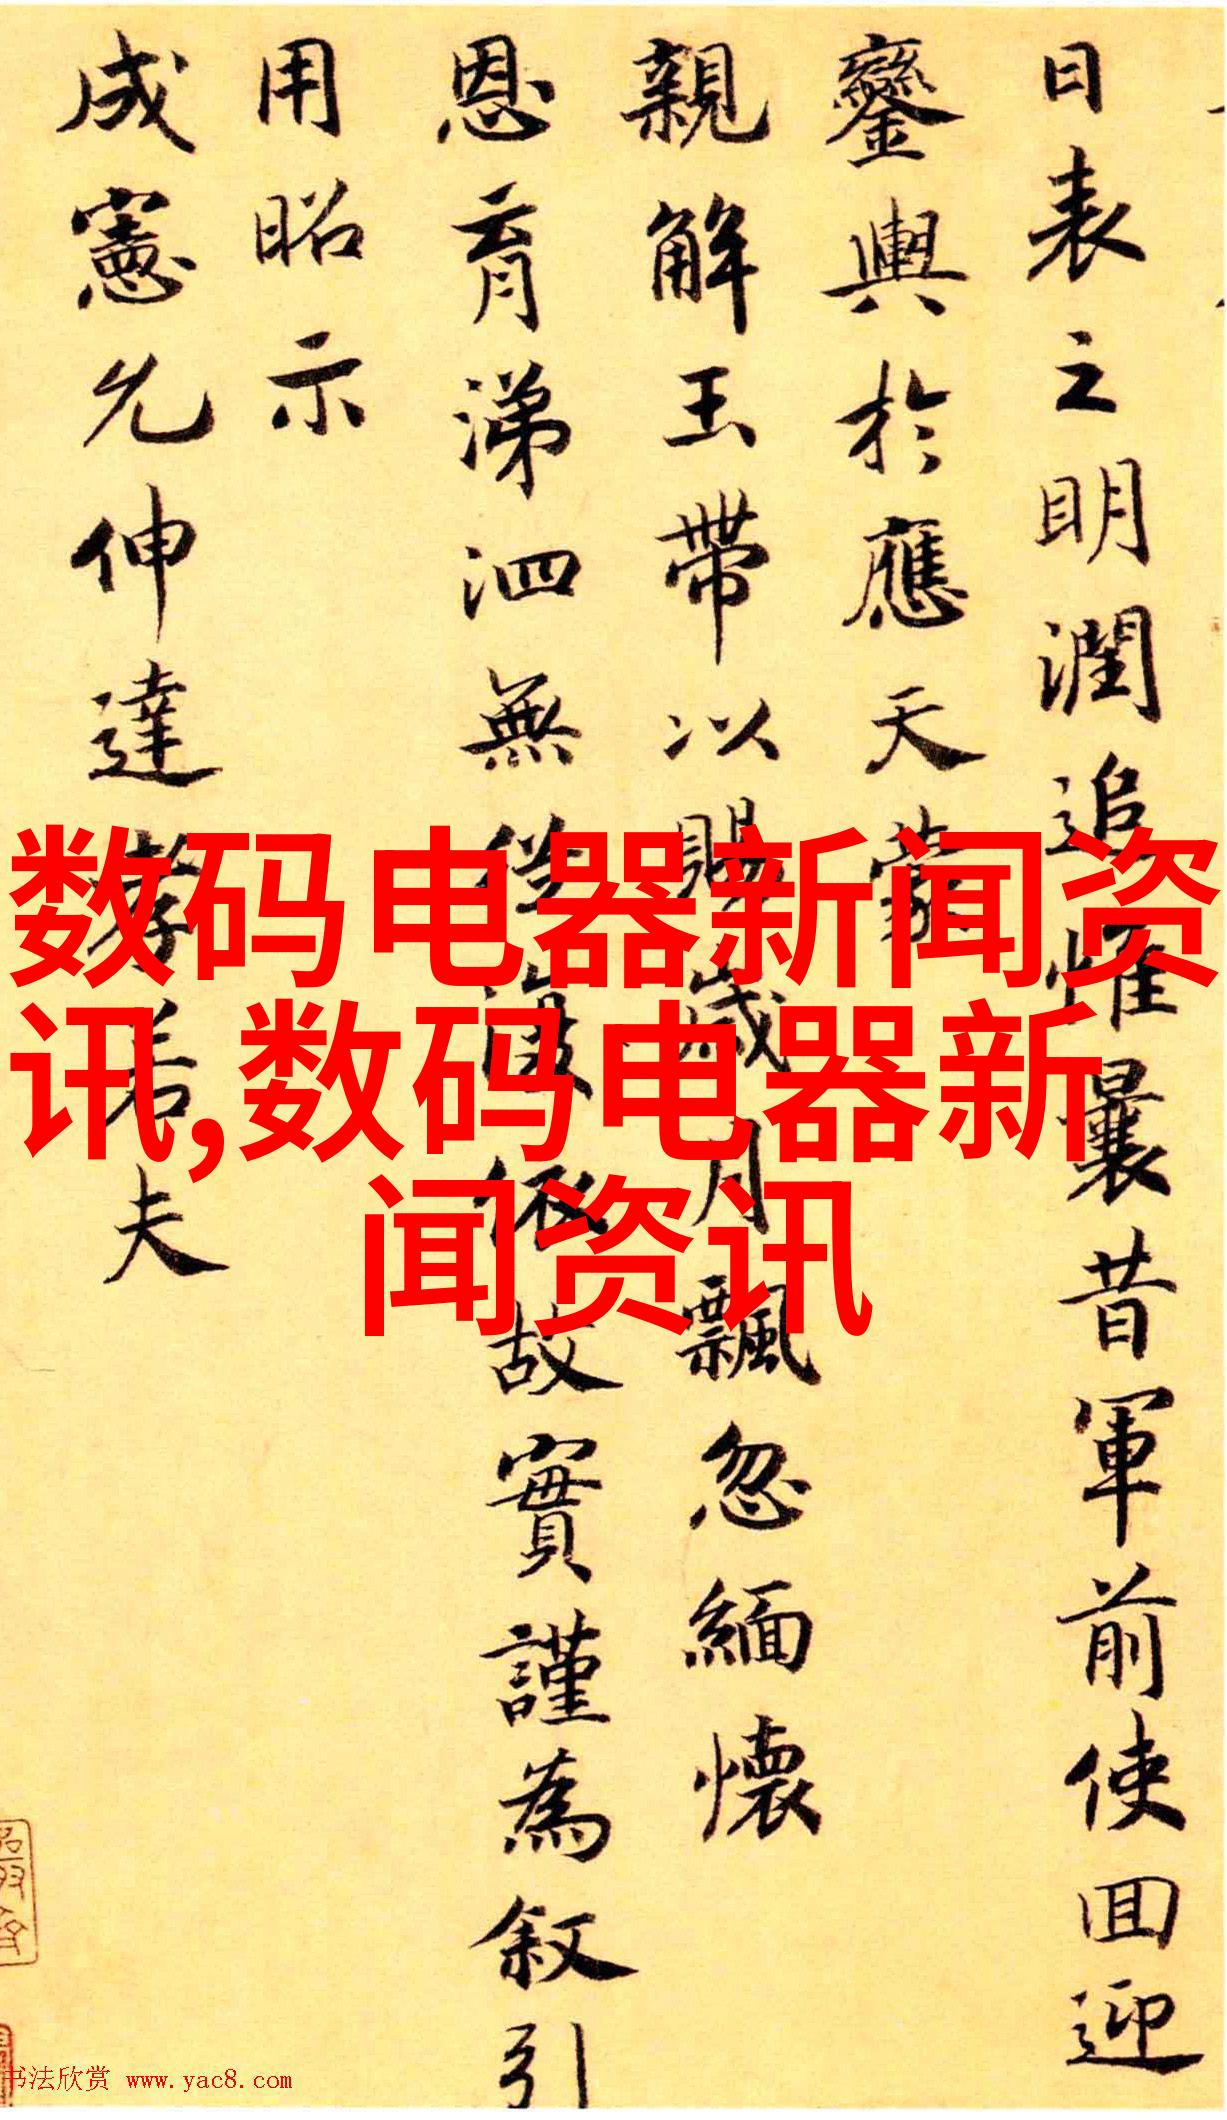 日表之明潤追惟曩昔軍前使回迎
鑾輿於應天蒙
親解玉帶以賜歲月飄忽緬懷
恩育涕泗無從援依故實謹為叙引
用昭示
成憲允伸達孝若夫
数码电器新闻资
讯,数码电器新
闻资讯
书法欣赏 www.yac8.com